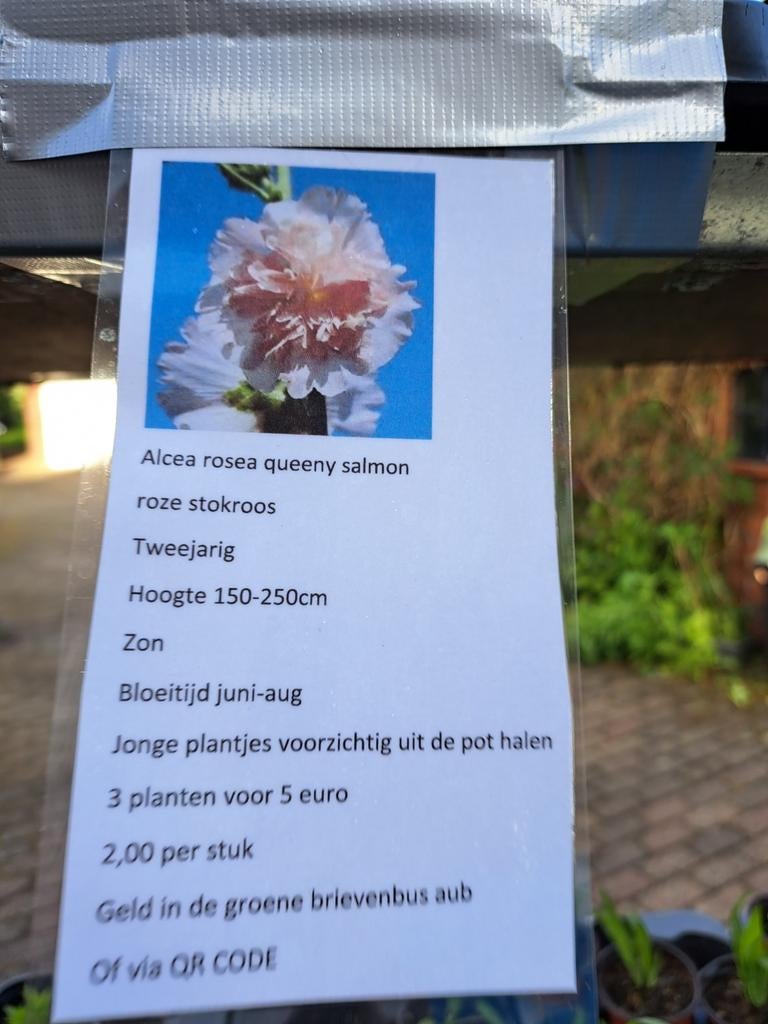 Alcea rosea queeny salmon
roze stokroos
Tweejarig
Hoogte 150-250cm
Zon
Bloeitijd juni-aug
Jonge plantjes voorzichtig uit de pot halen
3 planten voor 5 euro
2,00 per stuk
Geld in de groene brievenbus aub
Of via QR CODE